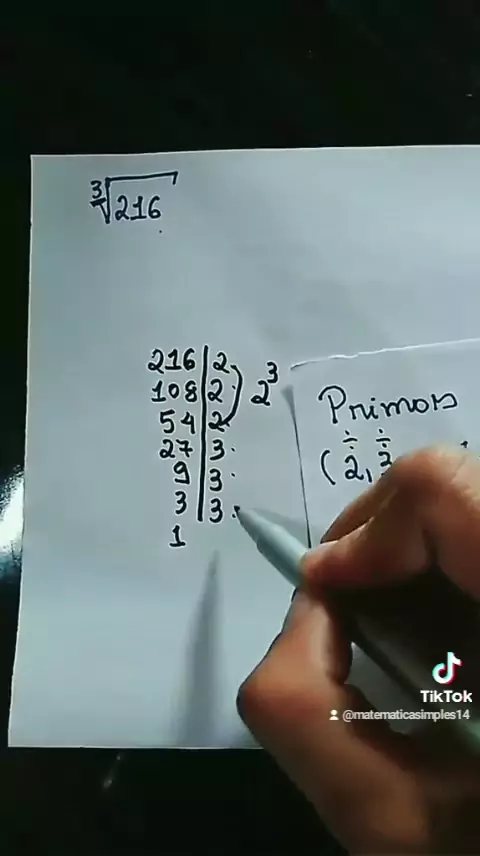 3√216
216 | 2
108 | 2 2³
54 | 2
27 | 3
9 | 3
3 | 3
1
Primos
÷ ÷
(2, 3
TikTok
@matematicasimples14